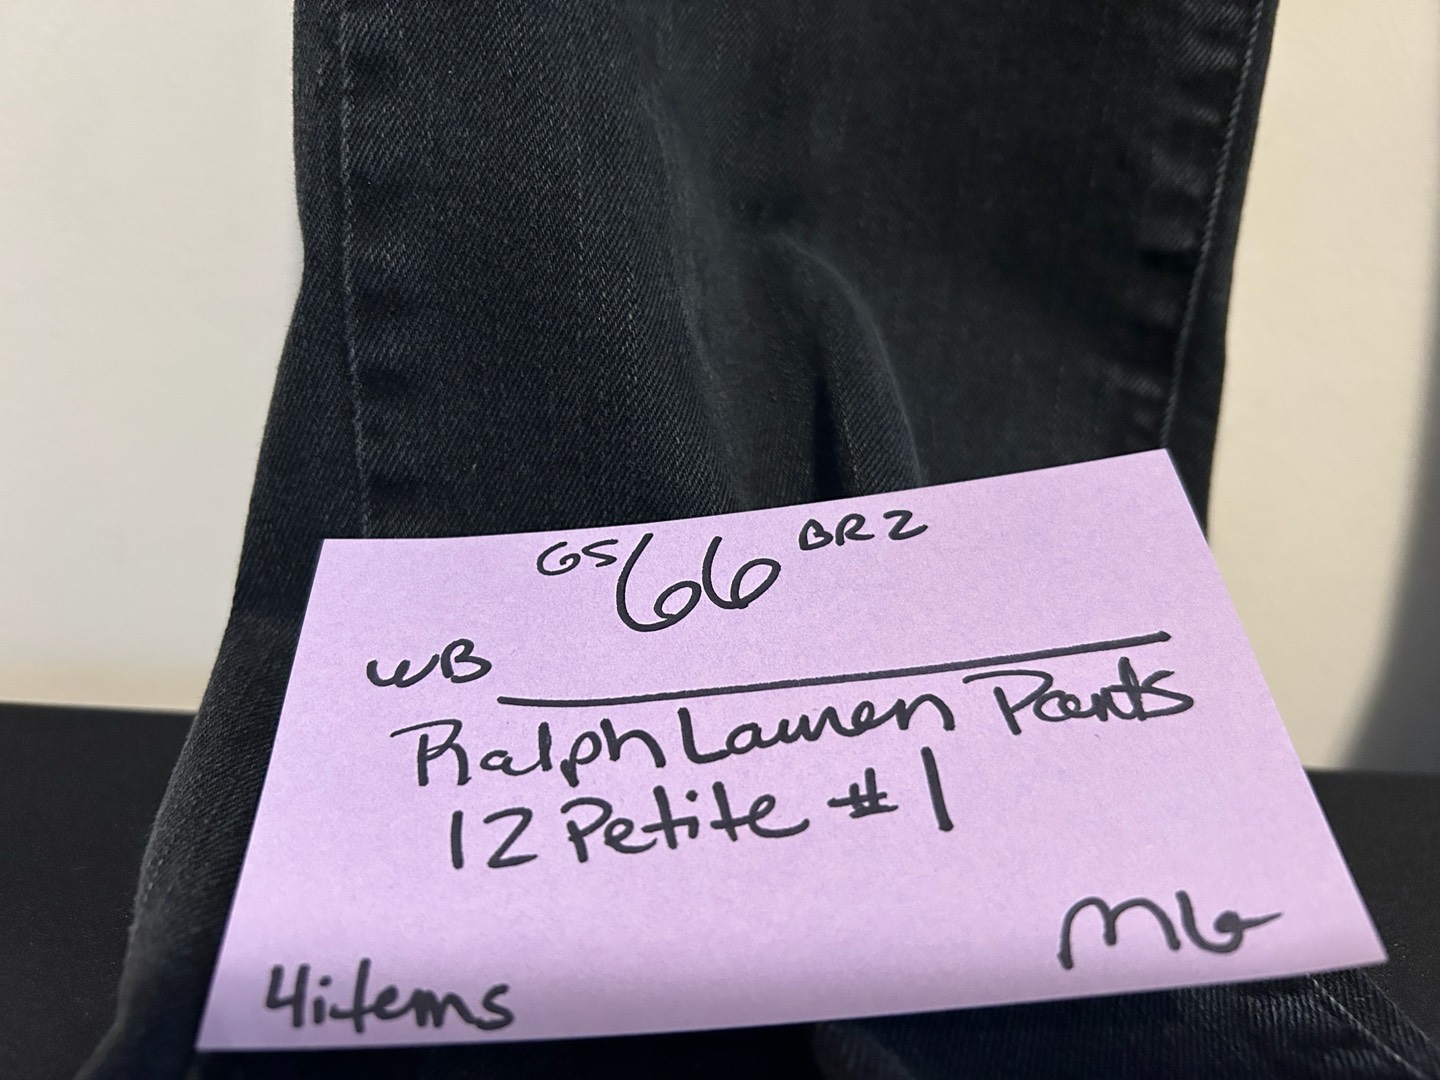 GS 66 BR2
WB
Ralph Lauren Pants
12 Petite #1
MG
4items